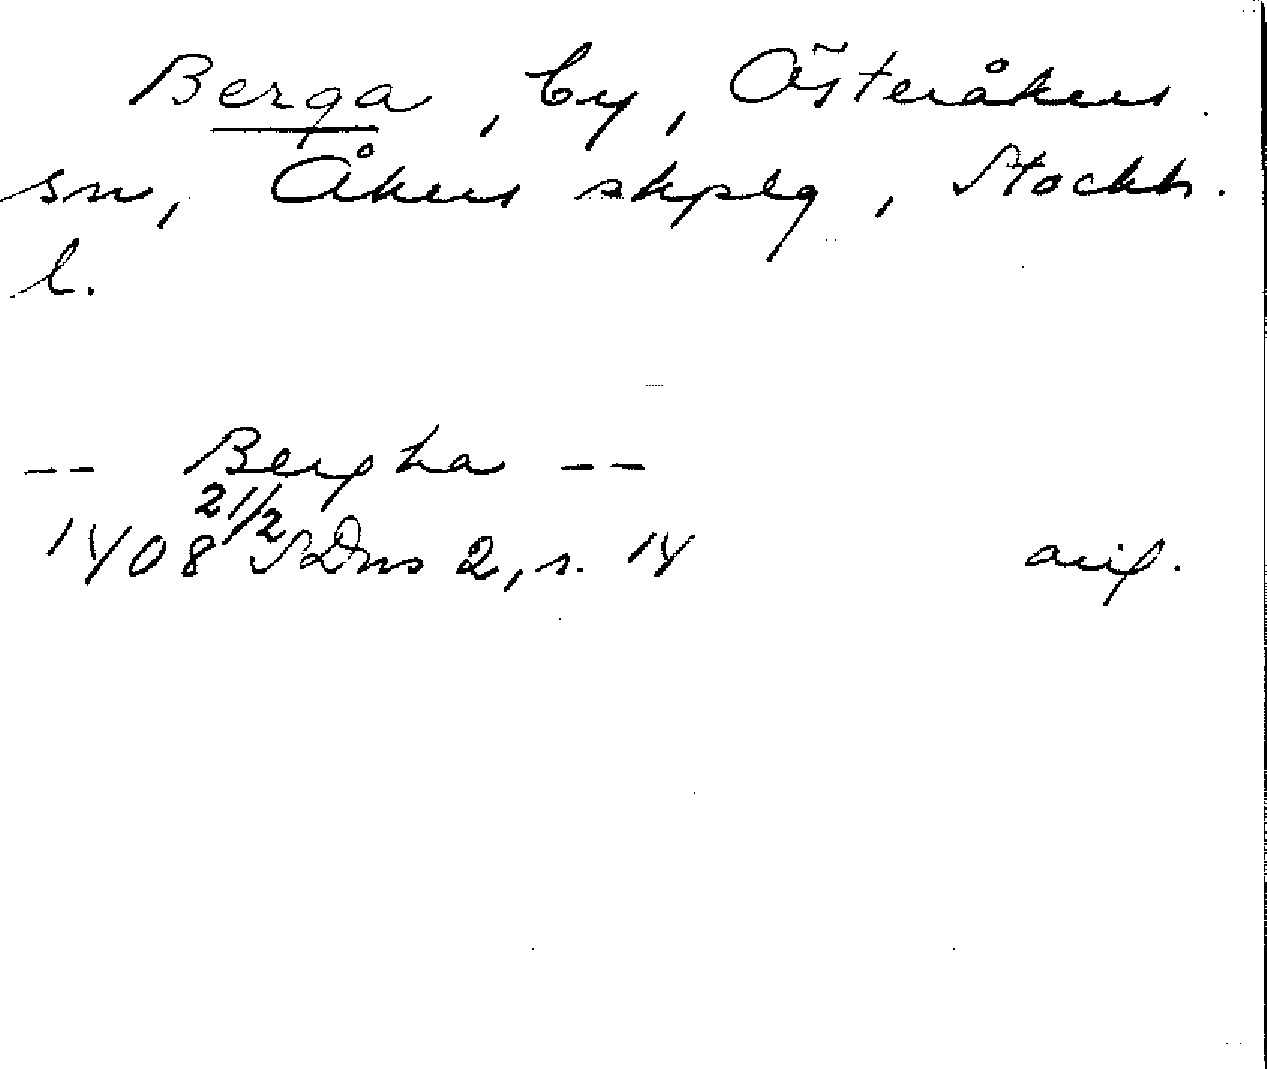 Berga, by, Österåkers
sn, Åkers skplg, Stockh.
l.
-- Bergha --
1408 21/2 SDns 2, s. 14 avskr.